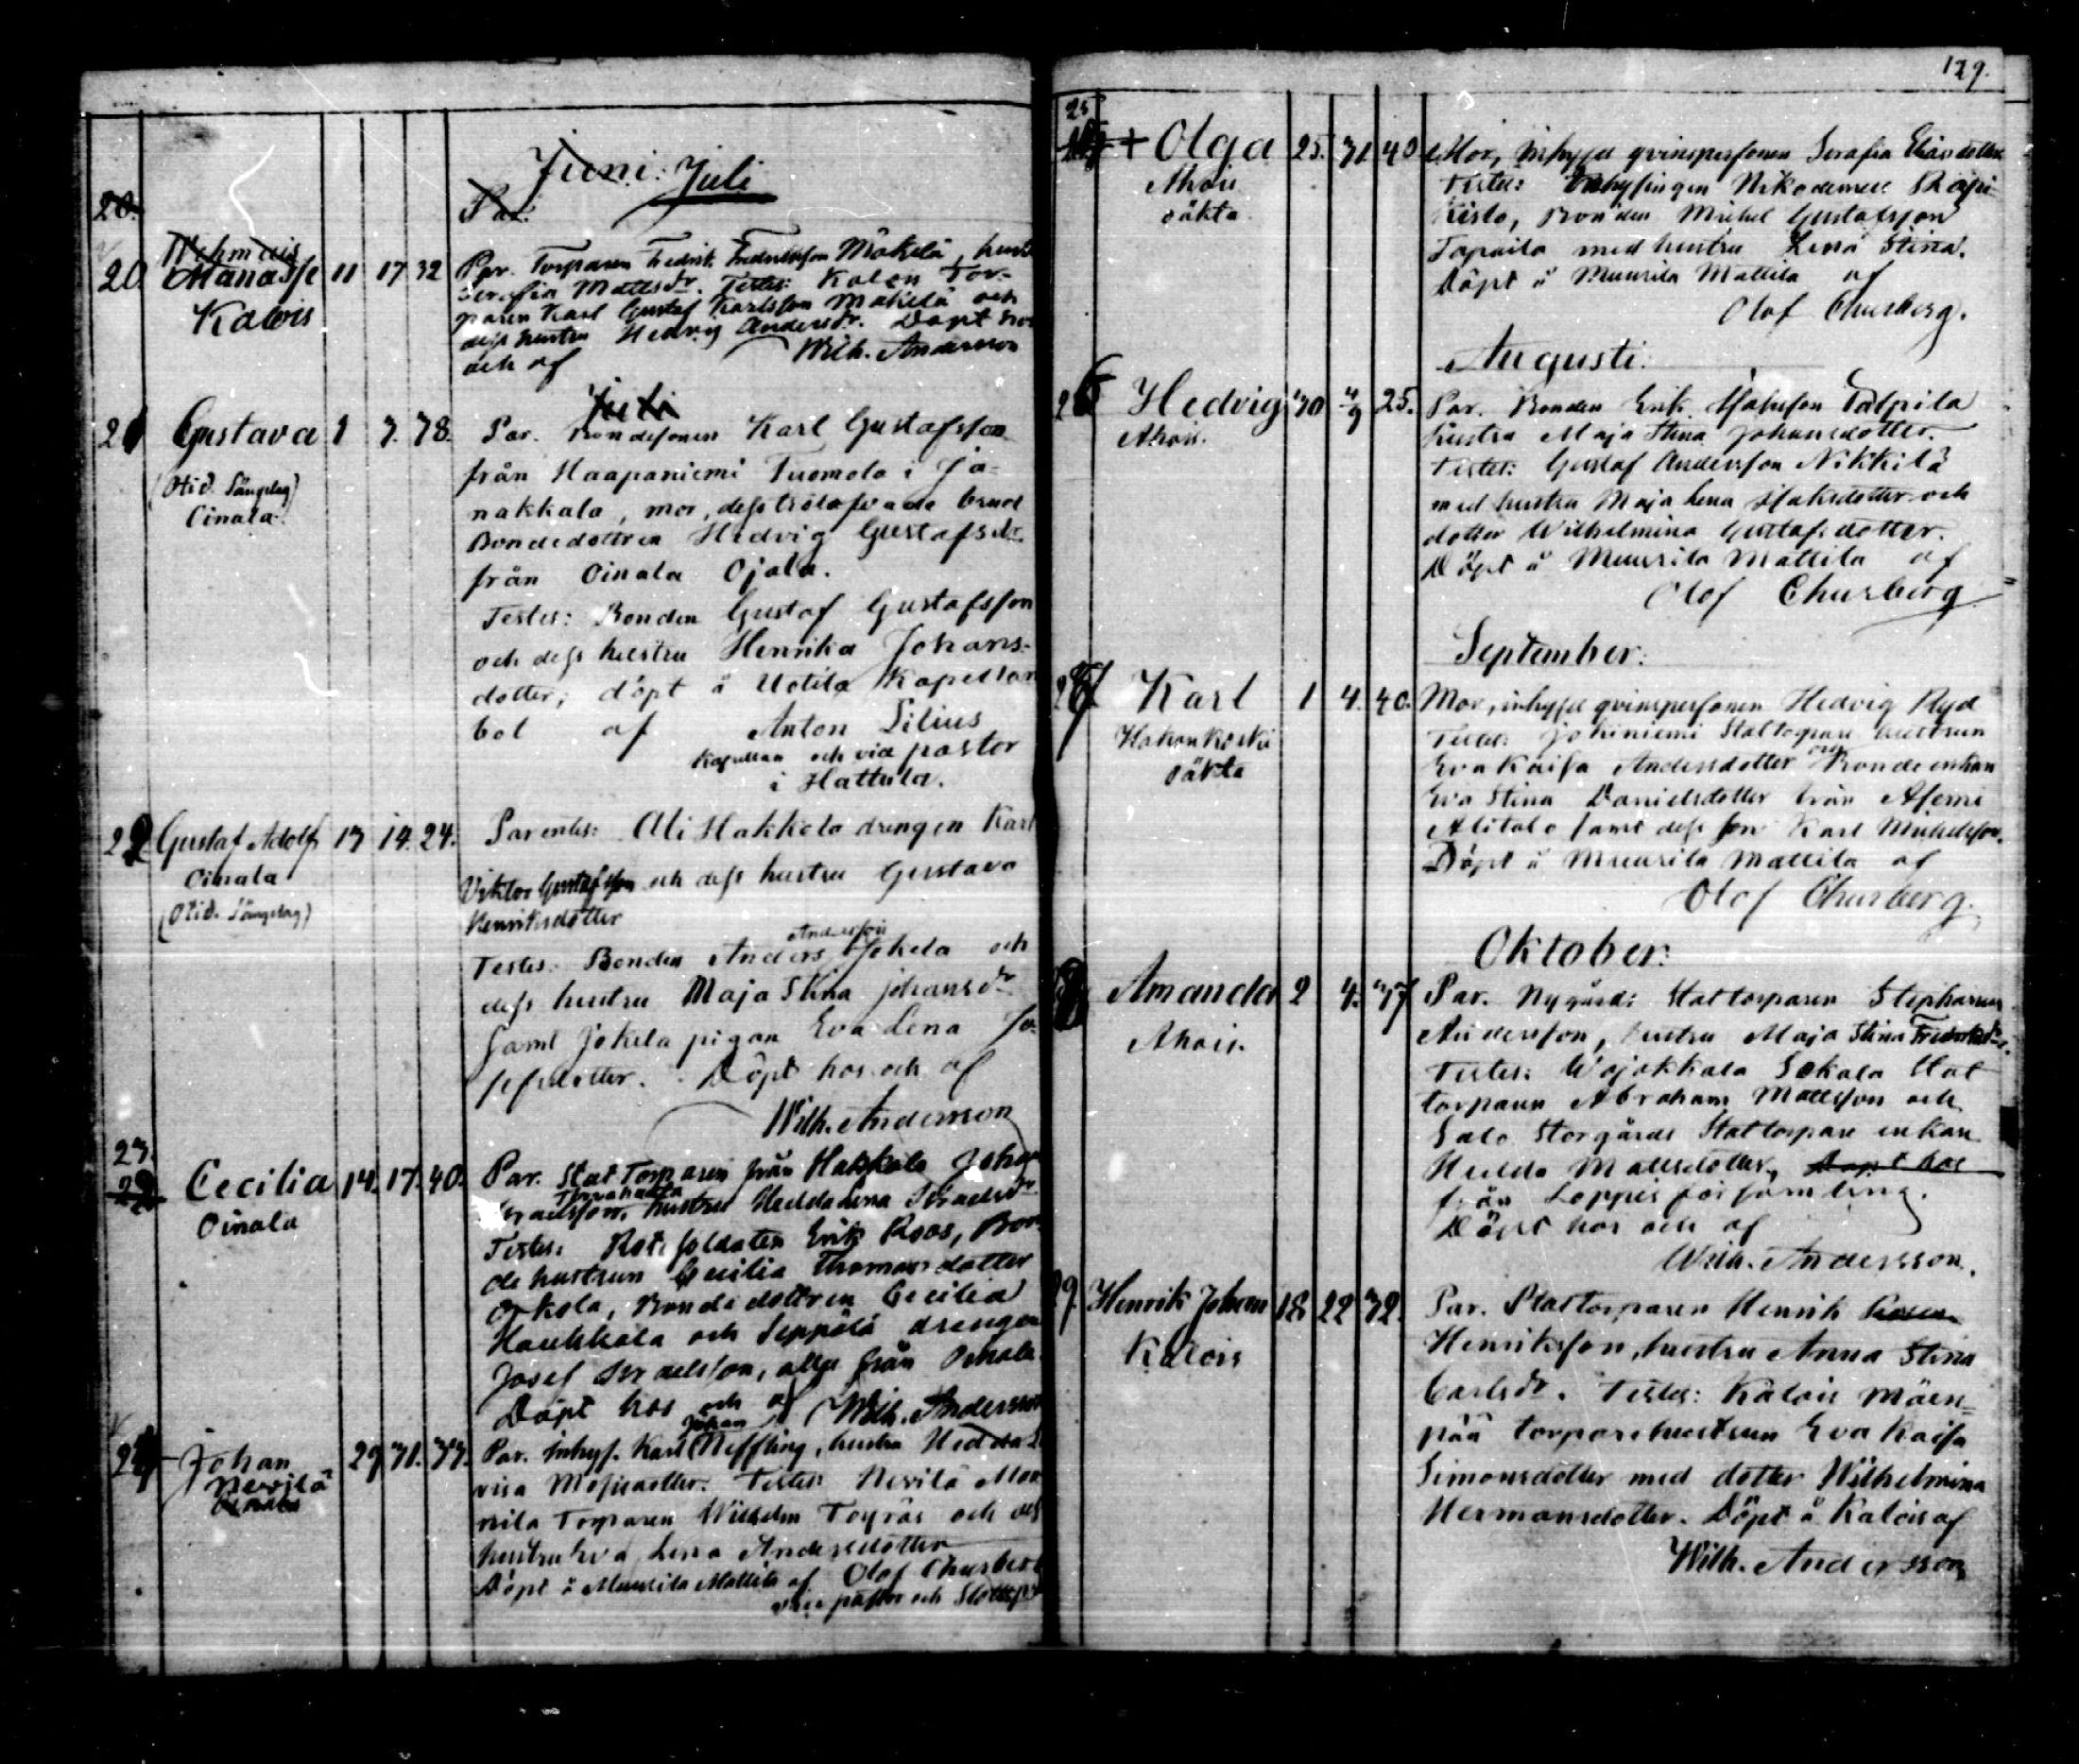 Juni: Juli
20.
Par.
20 Manasse 11 17 32 Par. Torparen Fredrik Fredriksson Mäkelä, hust
Kalois Serafia Mattsdr. Testes: Kalon Tor-
paren Karl Gustaf Karlsson Mäkelä och
dess hustru Hedvig Andersdr. Döpt hos
och af Wilh. Andersson
Juli
21 Gustava 1 7. 38. Par. Bondesonen Karl Gustafsson
från Haapaniemi Tuomola i Ja-
(Otid. Sängelag) nakkala, mor, dess trolofvade brud
Oinala. Bondedottren Hedvig Gustafsdr
från Oinala Ojala.
Testes: Bonden Gustaf Gustafsson
och dess hustru Henrika Johans-
dotter; döpt å Uotila Kapellans
bol af Anton Lilius
Kapellan och vice pastor
i Hattula.
22 Gustaf Adolf 13 14. 24. Parentes: Ali Hakkala drengen Karl
Oinala Viktor Gustafsson och dess hustru Gustava
(Otid. Sängelag) Henriksdotter
Andersson
Testes: Bonden Anders Jokela och
dess hustru Maja Stina Johansdr
samt Jokela pigan Eva Lena Jo-
sefsdotter. Döpt hos och af
Wilh. Andersson
23.
22 Cecilia 14. 17. 40. Par. Stat Torparen från Hakkala Johan
Oinala Israelsson, hustru Hedda Lena Israelsdr
Testes: Rote soldaten Erik Roos, Bon-
de hustrun Cecilia Thomasdotter
Orkola, Bonde dottren Cecilia
Haukkala och Seppälä drengen
Josef Israelsson, alla från Oinala
Döpt hos och af Wilh. Andersson
Johan
24 Johan 29 31. 37. Par. inhys. Karl Neffling, hustru Hedda L
Nevilä visa Mosisdotter. Testes: Nevilä
Oinala Torparen Wilhelm Toyräs och dess
hustru Eva Lena Andersdotter
Döpt å Muurila Mattila af Olof Churberg
vice pastor och
129.
25
+ Olga 25. 31. 40 Mor, inhyses qvinspersonen Serafia Eliasdotter
Ahois Testes: Inhysingen Nikodemus
oäkta. Risto, Bonden Mickel Gustafsson
Tapaila med hustru Lena Stina.
Döpt å Muurila Mattila af
Olof Churberg.
Augusti.
26 Hedvig 30 4/9 25. Par. Bonden Erik Talpila
Ahois. hustru Maja Stina Johansdotter.
Testes: Gustaf Andersson Nikkilä
med hustru Maja Lena Isaksdotter och
dotter Wilhelmina Gustafsdotter.
Döpt å Muurila Mattila af
Olof Churberg
September:
27 Karl 1 4. 40. Mor, inhyses qvinspersonen Hedvig Ryd
Hakankoski Testes: Jokiniemi Stattorpare hustrun
oäkta Eva Kaisa Andersdotter och Bondeenkan
Eva Stina Danielsdotter från
Alitalo samt dess son Karl Mickelsson.
Döpt å Muurila Mattila af
Olof Churberg.
Oktober:
28 Amanda 2 4. 37 Par. Nygårds Stattorparen Stephanus
Ahois. Andersson, hustru Maja Stina Fredriksdr.
Testes: Wojakkala Sokala Stat
torparen Abraham Mattsson och
Salo Storgårds Stattorpare enkan
Hedda Mattsdotter, Döpt hos
från Loppis församling.
Döpt hos och af
Wilh. Andersson.
29. Henrik Johan 18 22 32. Par. Stattorparen Henrik
Kalois Henriksson, hustru Anna Stina
Carlsdr. Testes: Kalois Mäen-
pää torpare hustrun Eva Kaisa
Simonsdotter med dotter Wilhelmina
Hermansdotter. Döpt å Kalois af
Wilh. Andersson